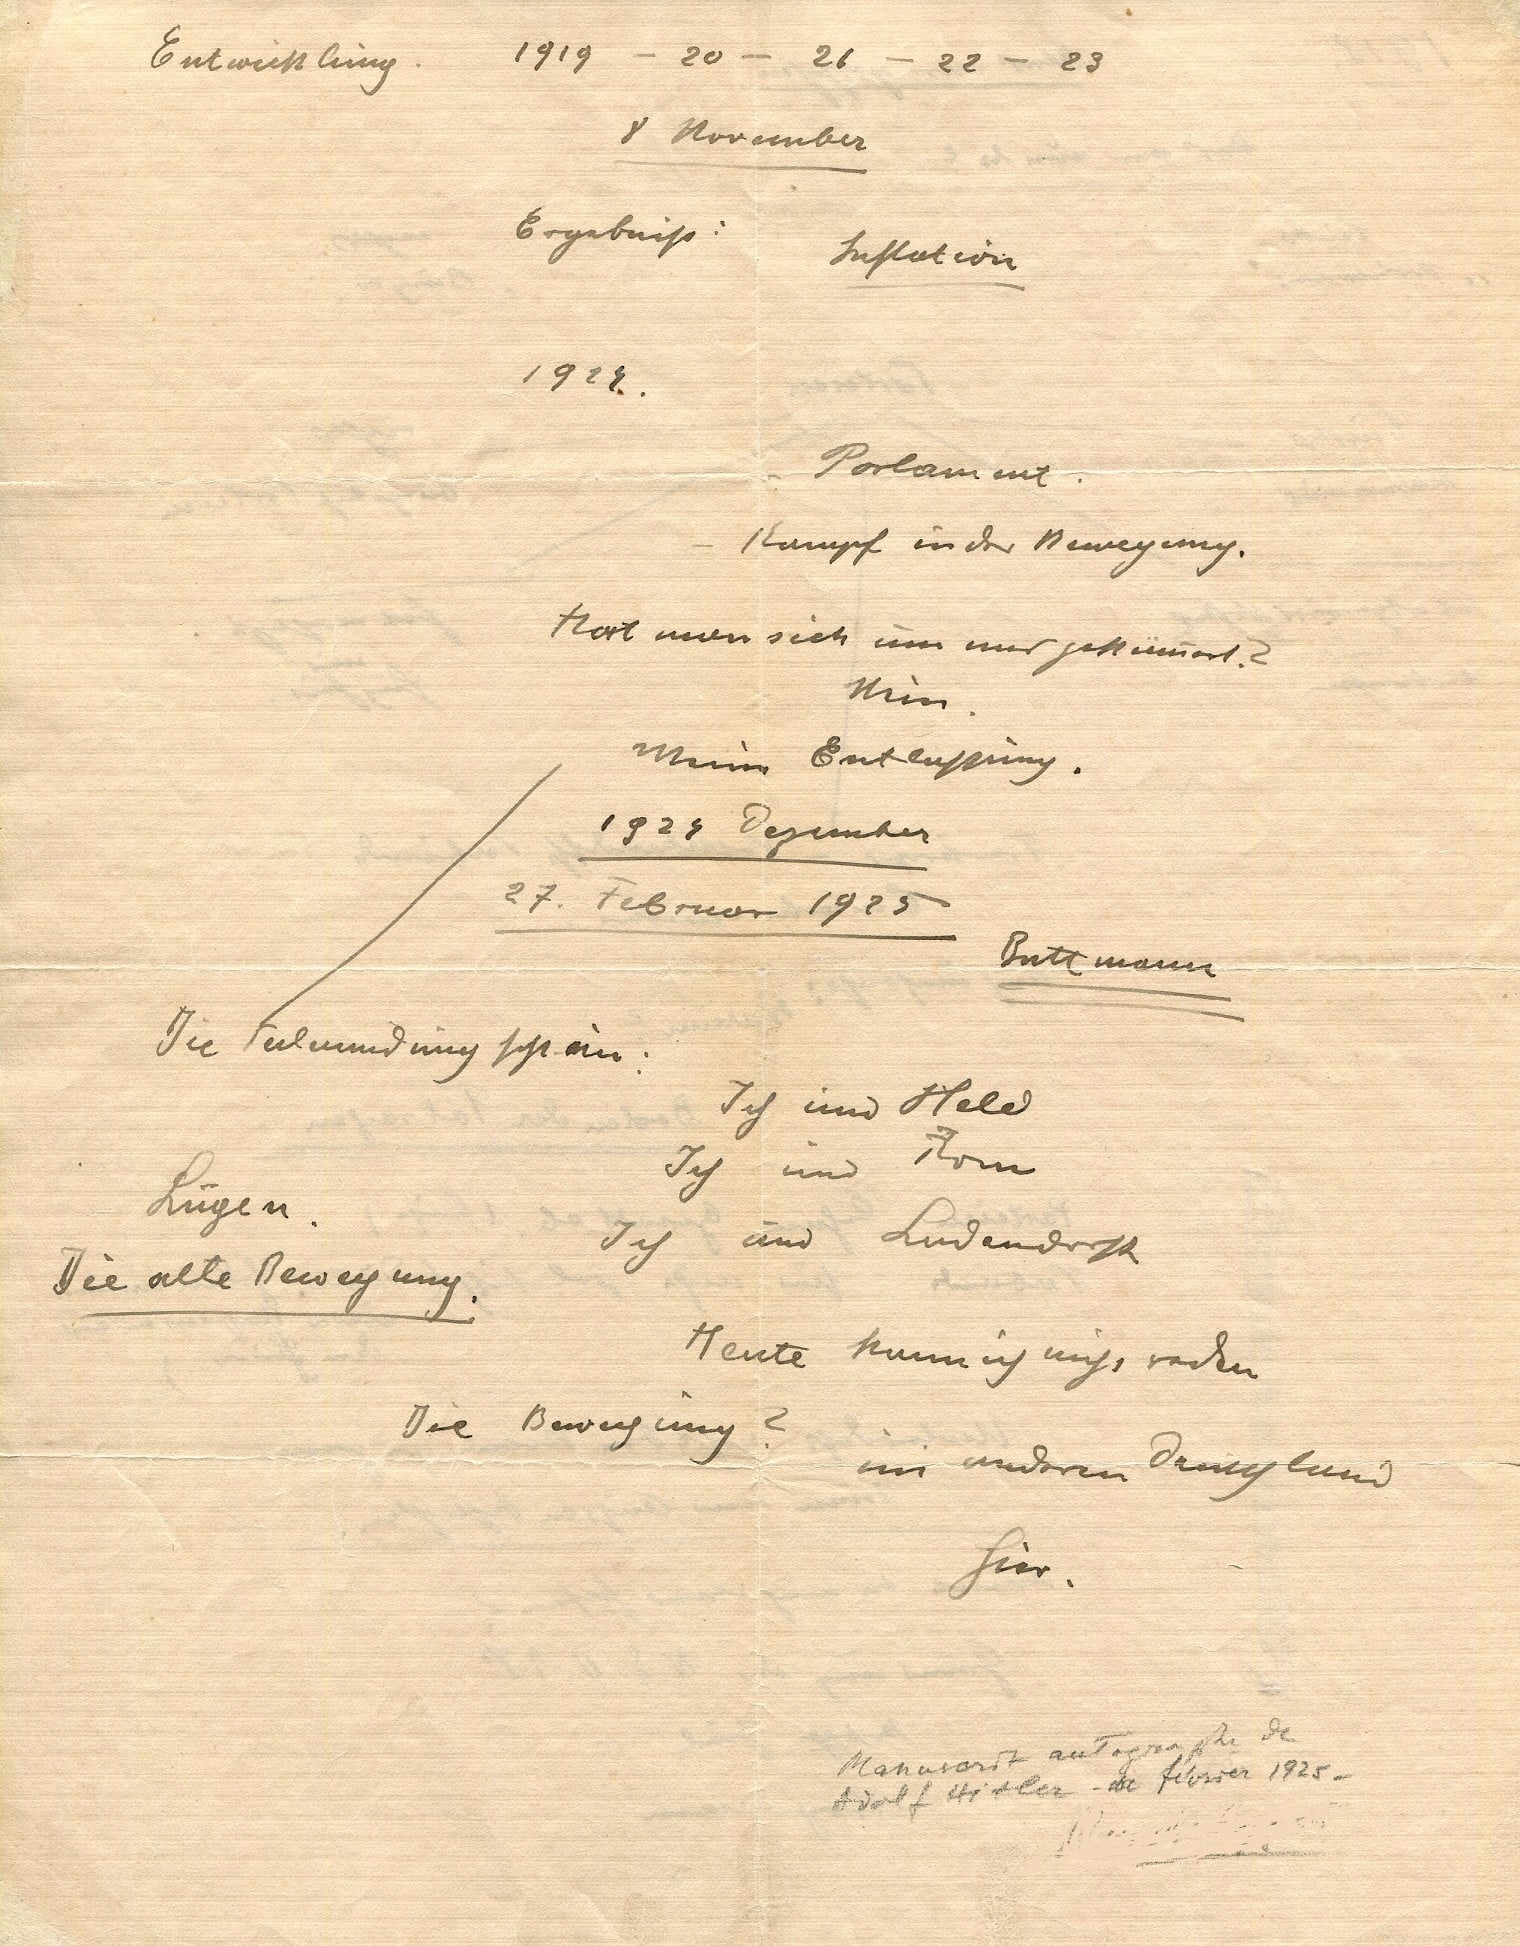 Entwicklung. 1919 – 20 – 21 – 22 – 23
8 November
Ergebniß:
Inflation
1924.
- Parlament.
– Kampf in der Bewegung.
Hat man sich um uns gekümmert?
Nein.
Meine Entlassung.
1924 Dezember
27. Februar 1925
Buttmann
Die
Ich und Held
Ich und Rom
Lügen.
Ich und Ludendorff
Die alte Bewegung.
Heute kann ich nicht reden
Die Bewegung?
im anderen Deutschland
hier.
Manuscrit autographe de
Adolf Hitler – de février 1925 –